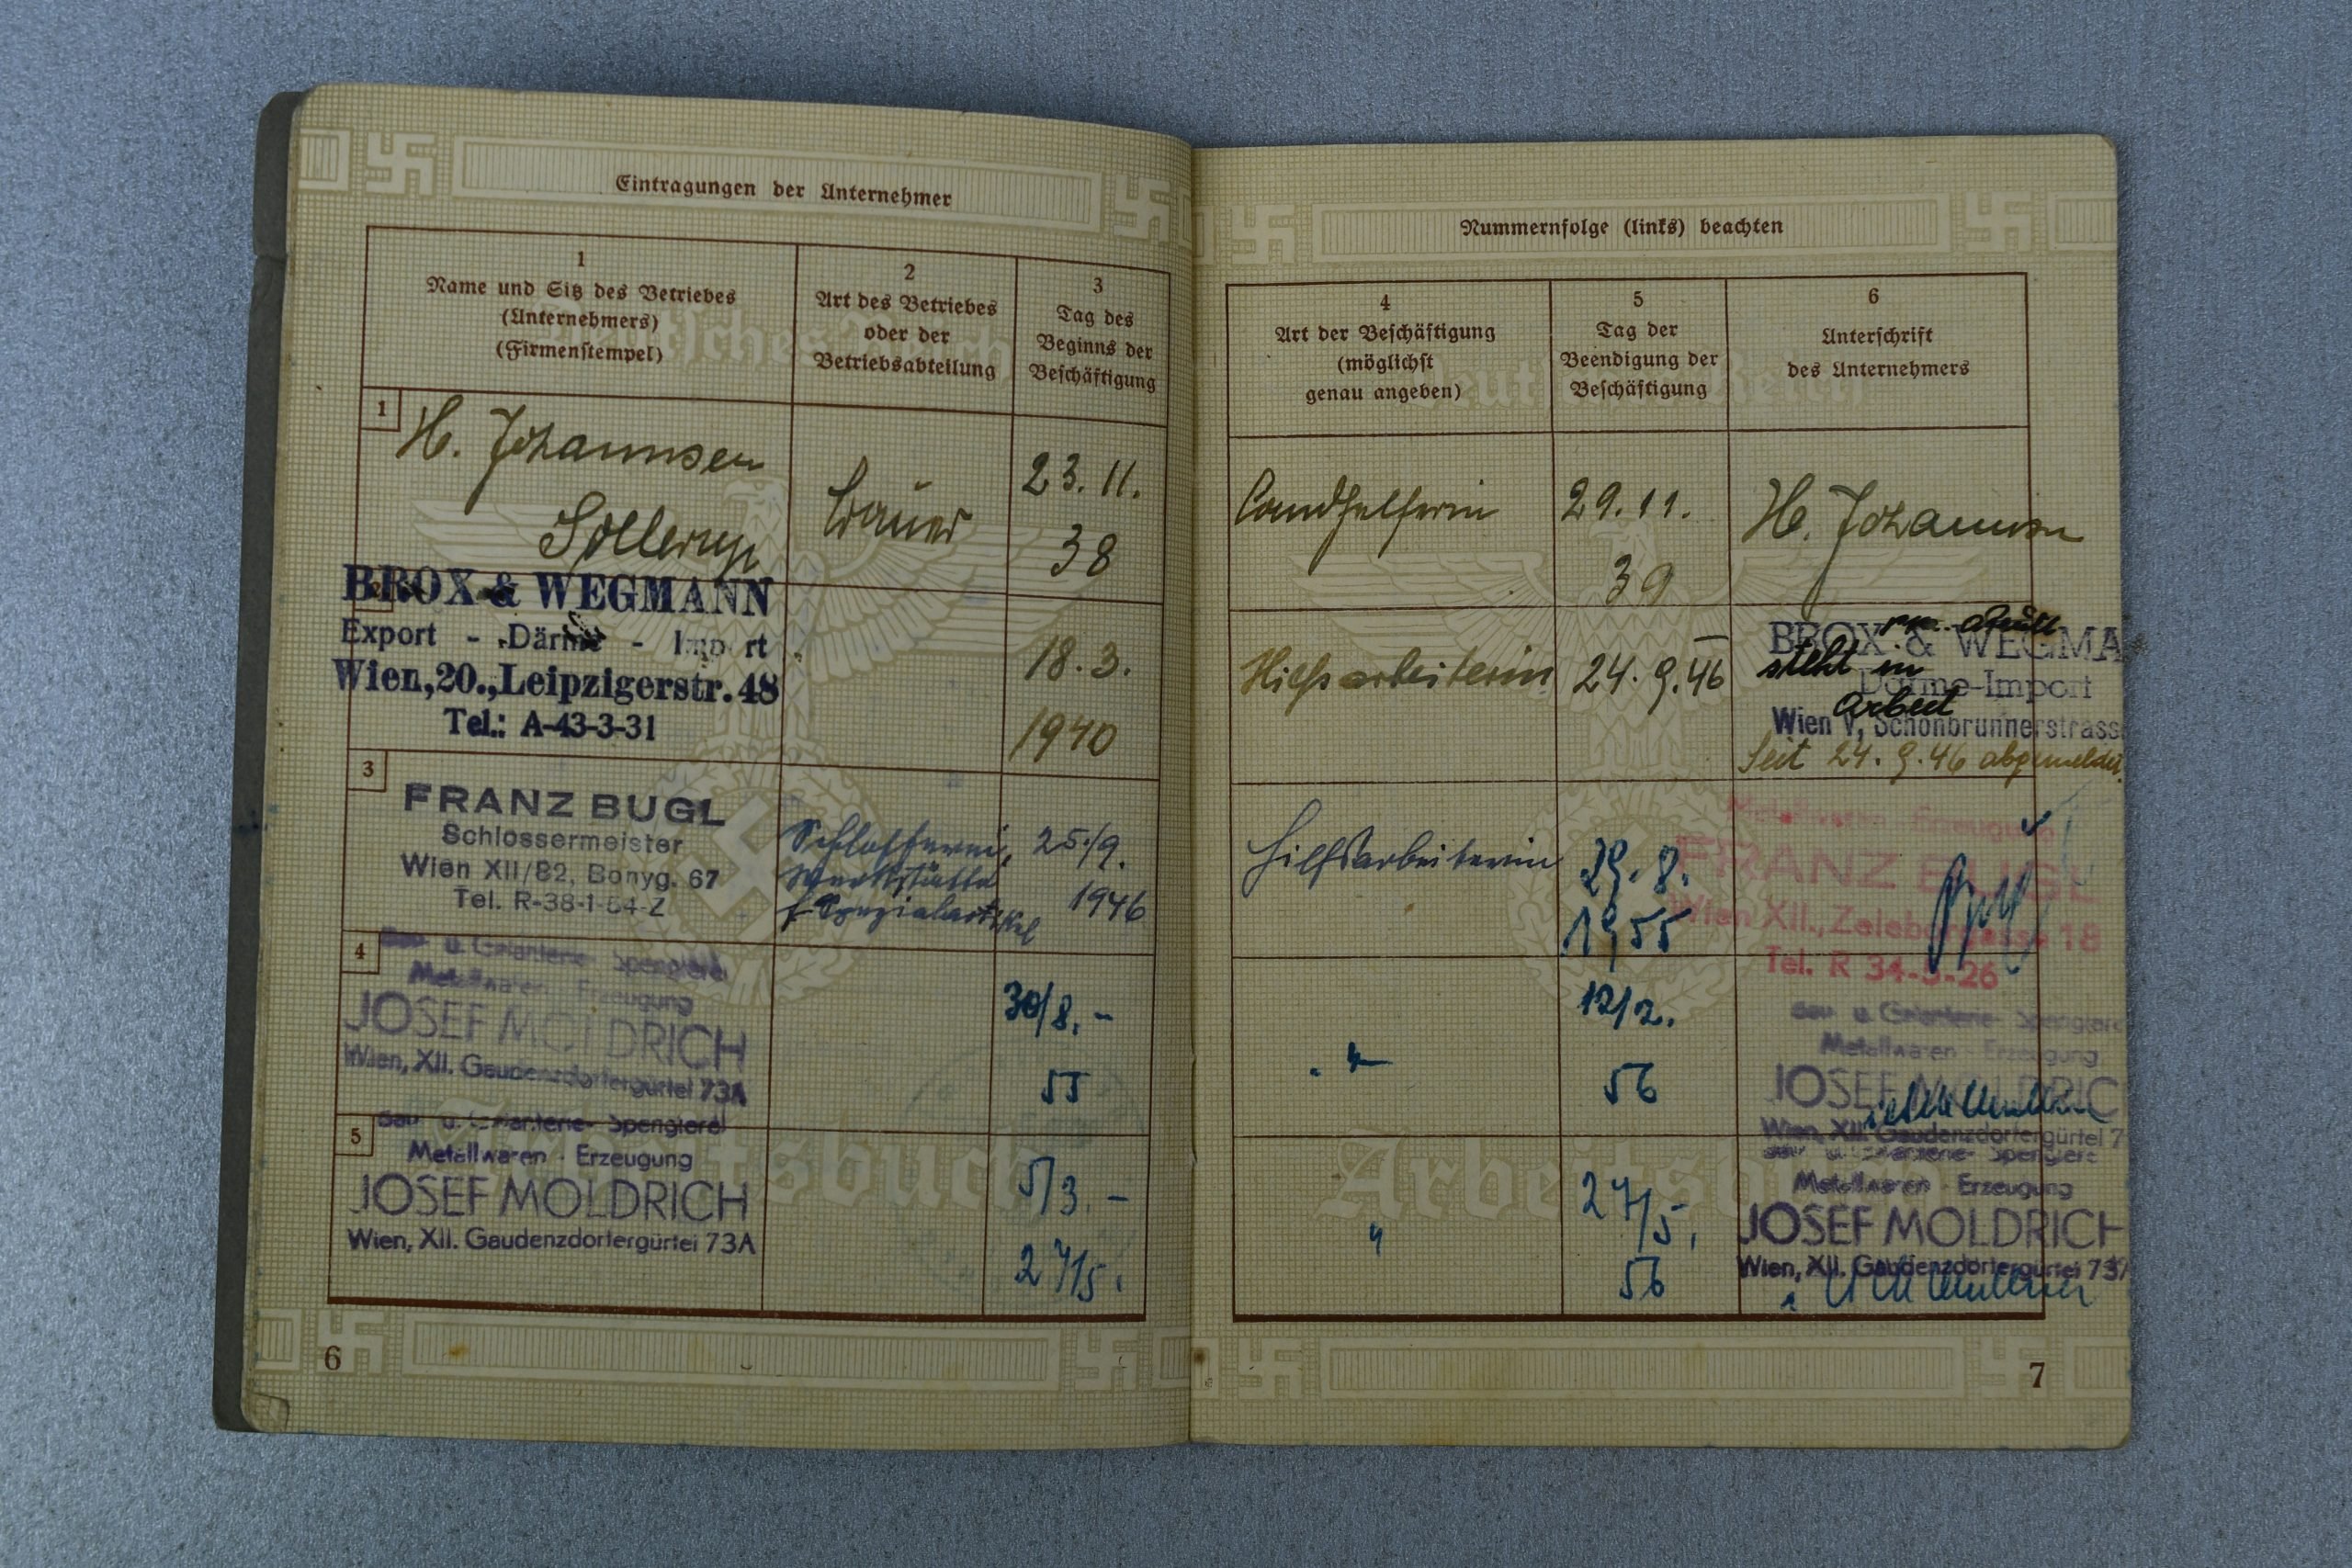 Eintragungen der Unternehmer
1
Name und Sitz des Betriebes
(Unternehmers)
(Firmenstempel)
2
Art des Betriebes
oder der
Betriebsabteilung
3
Tag des
Beginns der
Beschäftigung
1
H. Johannsen
Sollerup
Bauer
23. 11.
38
BROX & WEGMANN
Export - Därme - Import
Wien, 20., Leipzigerstr. 48
Tel.: A-43-3-31
18. 3.
1940
3
FRANZ BUGL
Schlossermeister
Wien XII/82, Bonyg. 67
Tel. R-38-1-54-Z
Schlosserei,
Werkstätte
f. Spezialartikel
25./9.
1946
4
Bau- u. Galanterie- Spenglerei
Metallwaren - Erzeugung
JOSEF MOLDRICH
Wien, XII. Gaudenzdorfergürtel 73A
30/8. -
55
5
Bau- u. Galanterie- Spenglerei
Metallwaren - Erzeugung
JOSEF MOLDRICH
Wien, XII. Gaudenzdorfergürtel 73A
5/3. -
27/5.
6
Nummernfolge (links) beachten
4
Art der Beschäftigung
(möglichst
genau angeben)
5
Tag der
Beendigung der
Beschäftigung
6
Unterschrift
des Unternehmers
Landhelferin
29. 11.
39
H. Johannsen
Hilfsarbeiterin
24. 9. 46
BROX & WEGMA
steht in
Därme-Import
Arbeit
Wien V, Schönbrunnerstrass
Seit 24. 9. 46 abgemeldet.
Hilfsarbeiterin
29. 8.
1955
Metallwaren - Erzeugung
FRANZ BUGL
Wien XII., Zelebergasse 18
Tel. R 34-5-26
"
12/2.
56
Bau- u. Galanterie- Spenglerei
Metallwaren - Erzeugung
JOSEF MOLDRIC
Wien, XII. Gaudenzdorfergürtel 7
"
27/5.
56
Bau- u. Galanterie- Spenglerei
Metallwaren - Erzeugung
JOSEF MOLDRICH
Wien, XII. Gaudenzdorfergürtel 73A
7
Deutsches Reich
Arbeitsbuch
Deutsches Reich
Arbeitsbuch